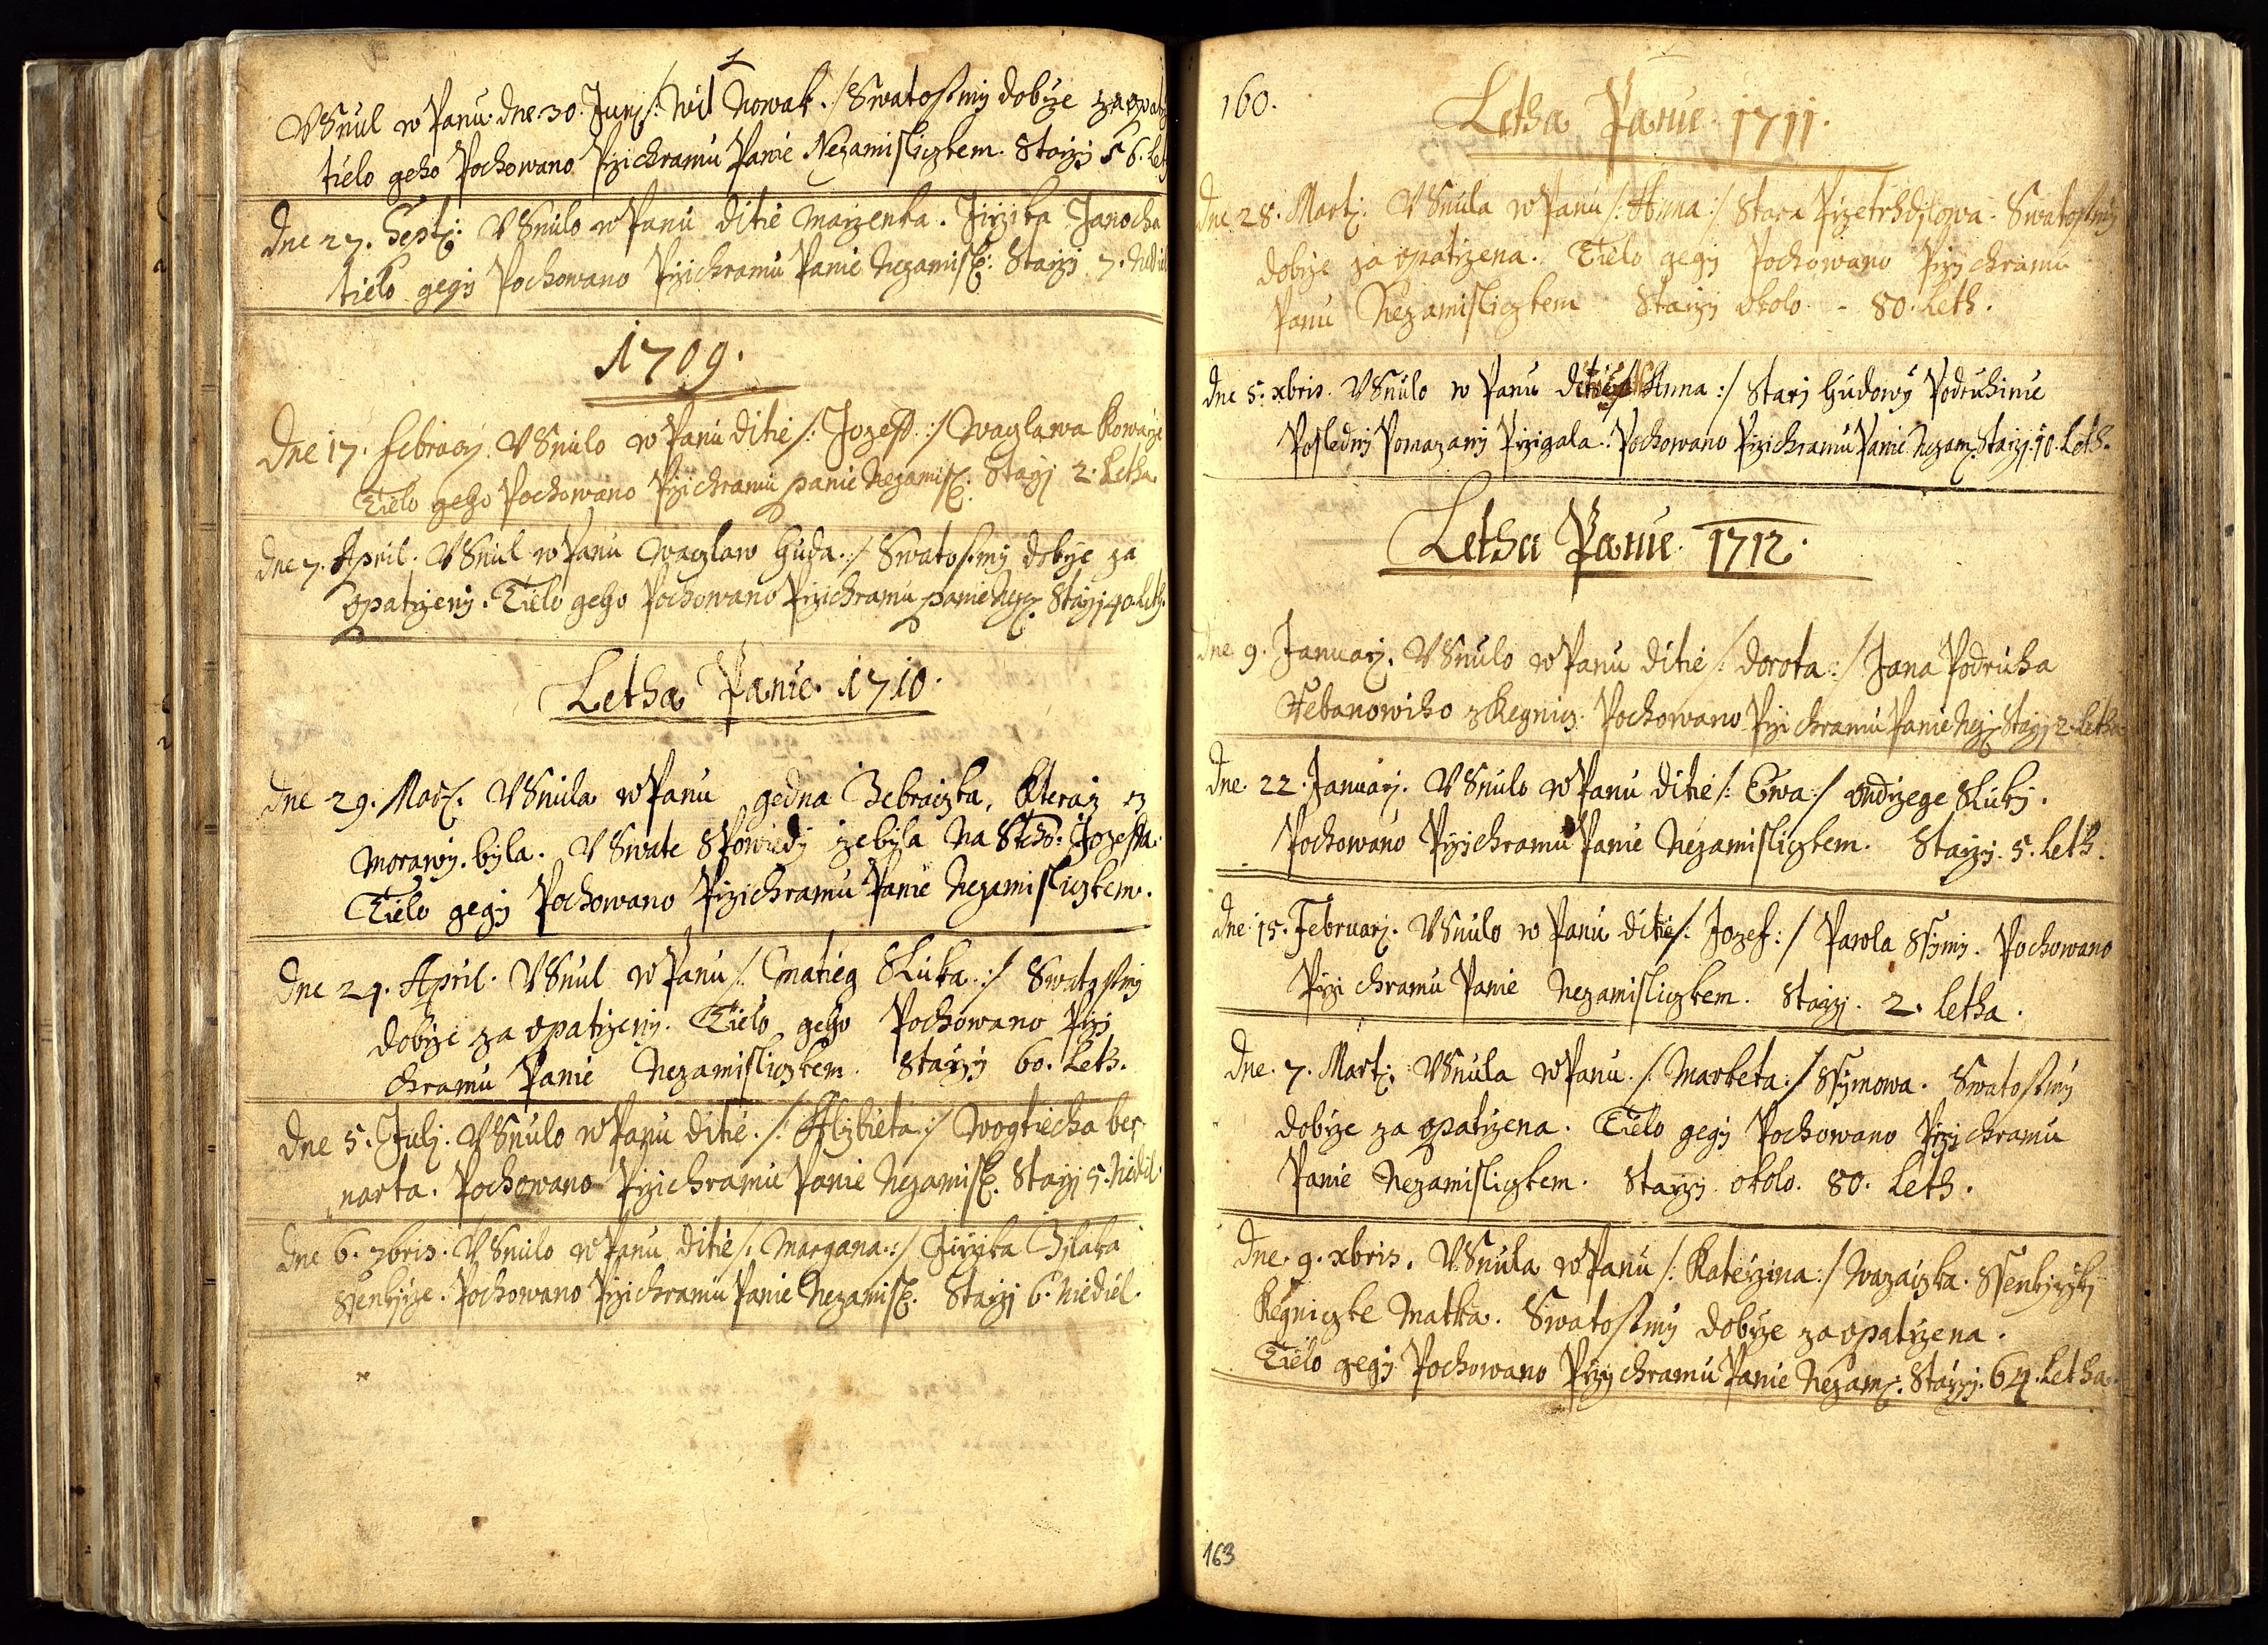 VSnul w Panu dne 30. Junj /: Wit Nowak :/ Swatostmi dobrze zaopat
tielo geho Pochowano Przichramu Panie Nezamisliczkem. Starzj 56. Let
dne 27. Sept: VSnulo w Panu ditie Marzenka. Jirzika Janocha
tielo gegj Pochowano Przichramu Panie Nezamisl: Starzj 7. Nediel
1709.
Dne 17. Februarj VSnulo w Panu ditie /: Jozeff :/ Waczlawa Kowarze
Tielo geho Pochowano Przichramu panie Nezamisl: Starzj 2. Letha
dne 7. April. VSnul w Panu Waczlaw Huda :/ Swatostmi dobrze za
opatrzeny. Tielo geho Pochowano Przichramu panie Nez: Starzj 40. Leth.
Letha Panie 1710.
dne 29. Mar: VSnula w Panu gedna Zebraczka, kteraz z
Morawy byla. V Swate Spowiedj zebyla Na Steho: Jozeffa.
Tielo gegj Pochowano Przichramu Panie Nezamisliczkem.
dne 24. April. VSnul w Panu /: Matieg Sluka :/ Swatostmi
dobrze zaopatrzeny. Tielo geho Pochowano Przj
chramu Panie Nezamisliczkem. Starzj 60. Leth.
dne 5. Julj. VSnulo w Panu ditie /: Alzbieta :/ Wogtiecha ber
narta. Pochowano Przichramu Panie Nezamisl: Starzj 5. Niediel
dne 6. 7bris. VSnulo w Panu ditie /: Margana :/ Jirzika Zilaka
Ssenkirze. Pochowano Przichramu Panie Nezamisl: Starzj 6. Niediel.
160.
Letha Panie 1711.
dne 28. Martj. VSnula w Panu /: Anna :/ Stara Przetrhdilowa. Swatostmi
dobrze za opatrzena. Tielo gegj Pochowano Przj chramu
Panu Nezamisliczkem Starzj okolo - 80. Leth.
dne 5. xbris. VSnulo w Panu ditie /: Anna :/ Starj Hudowy Podruhinie
Poslednj Pomazanj Przigala. Pochowano Przichramu Panie Nezam: Starzj 10. Leth.
Letha Panie 1712.
dne 9. Januarj. VSnulo w Panu ditie /: Dorota :/ Jana Podruha
Stebanowiho z Regnicz. Pochowano Przi chramu Panie Nez: Starzj 2. Letha
dne 22. Januarj. VSnulo w Panu ditie /: Ewa :/ Ondrzege Slukj.
Pochowano Przichramu Panie Nezamisliczkem. Starzj 5. Leth.
dne 15. Februarj. VSnulo w Panu ditie /: Jozef :/ Pawla Ssymi. Pochowano
Przi chramu Panie Nezamisliczkem. Starzj. 2. Letha.
dne. 7. Mart: VSnula w Panu /: Marketa :/ Ssymowa. Swatostmi
dobrze za opatrzena. Tielo gegj Pochowano Przj chramu
Panie Nezamisliczkem. Starzj okolo. 80. Leth.
Dne. 9. xbris. VSnula w Panu /: Katerzina :/ Wazaczka. Ssenkirzkj
Regniczke Matka. Swatostmi dobrze zaopatrzena.
Tielo gegj Pochowano Przj chramu Panie Nezam: Starzj. 64. Letha.
163